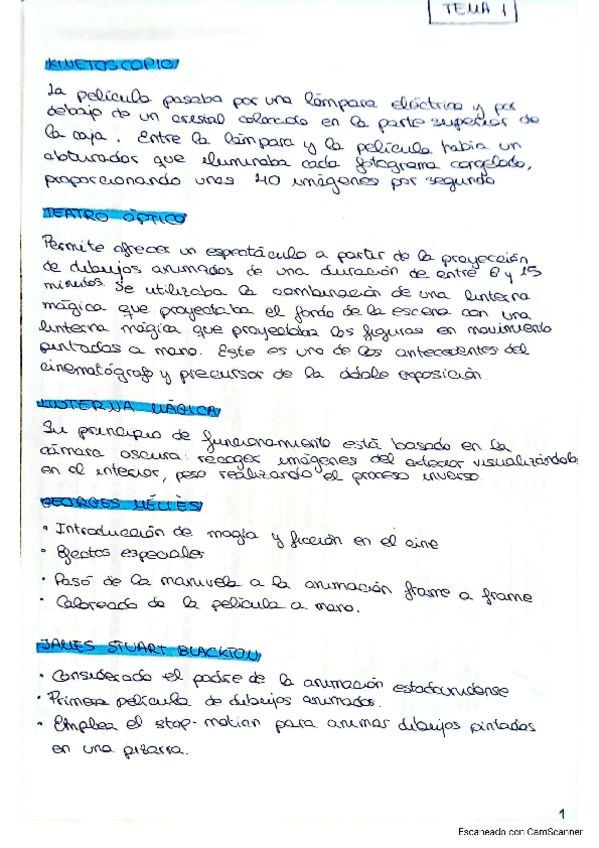 TEMA 1
KINETOSCOPIO
La película pasaba por una lámpara eléctrica y por
debajo de un cristal colocado en la parte superior de
la caja. Entre la lámpara y la película había un
obturador que iluminaba cada fotograma congelado,
proporcionando unas 40 imágenes por segundo
TEATRO ÓPTICO
Permite ofrecer un espectáculo a partir de la proyección
de dibujos animados de una duración de entre 6 y 15
minutos. Se utilizaba la combinación de una linterna
mágica que proyectaba el fondo de la escena con una
linterna mágica que proyectaba las figuras en movimiento
pintadas a mano. Este es uno de los antecedentes del
cinematógrafo y precursor de la doble exposición.
LINTERNA MÁGICA
Su principio de funcionamiento está basado en la
cámara oscura: recoger imágenes del exterior visualizándolas
en el interior, pero realizando el proceso inverso.
GEORGES MÉLIÈS
• Introducción de magia y ficción en el cine
• Efectos especiales
• Pasó de la manivela a la animación frame a frame
• Coloreado de la película a mano.
JAMES STUART BLACKTON
• Considerado el padre de la animación estadounidense
• Primera película de dibujos animados.
• Emplea el stop-motion para animar dibujos pintados
en una pizarra.
1
Escaneado con CamScanner